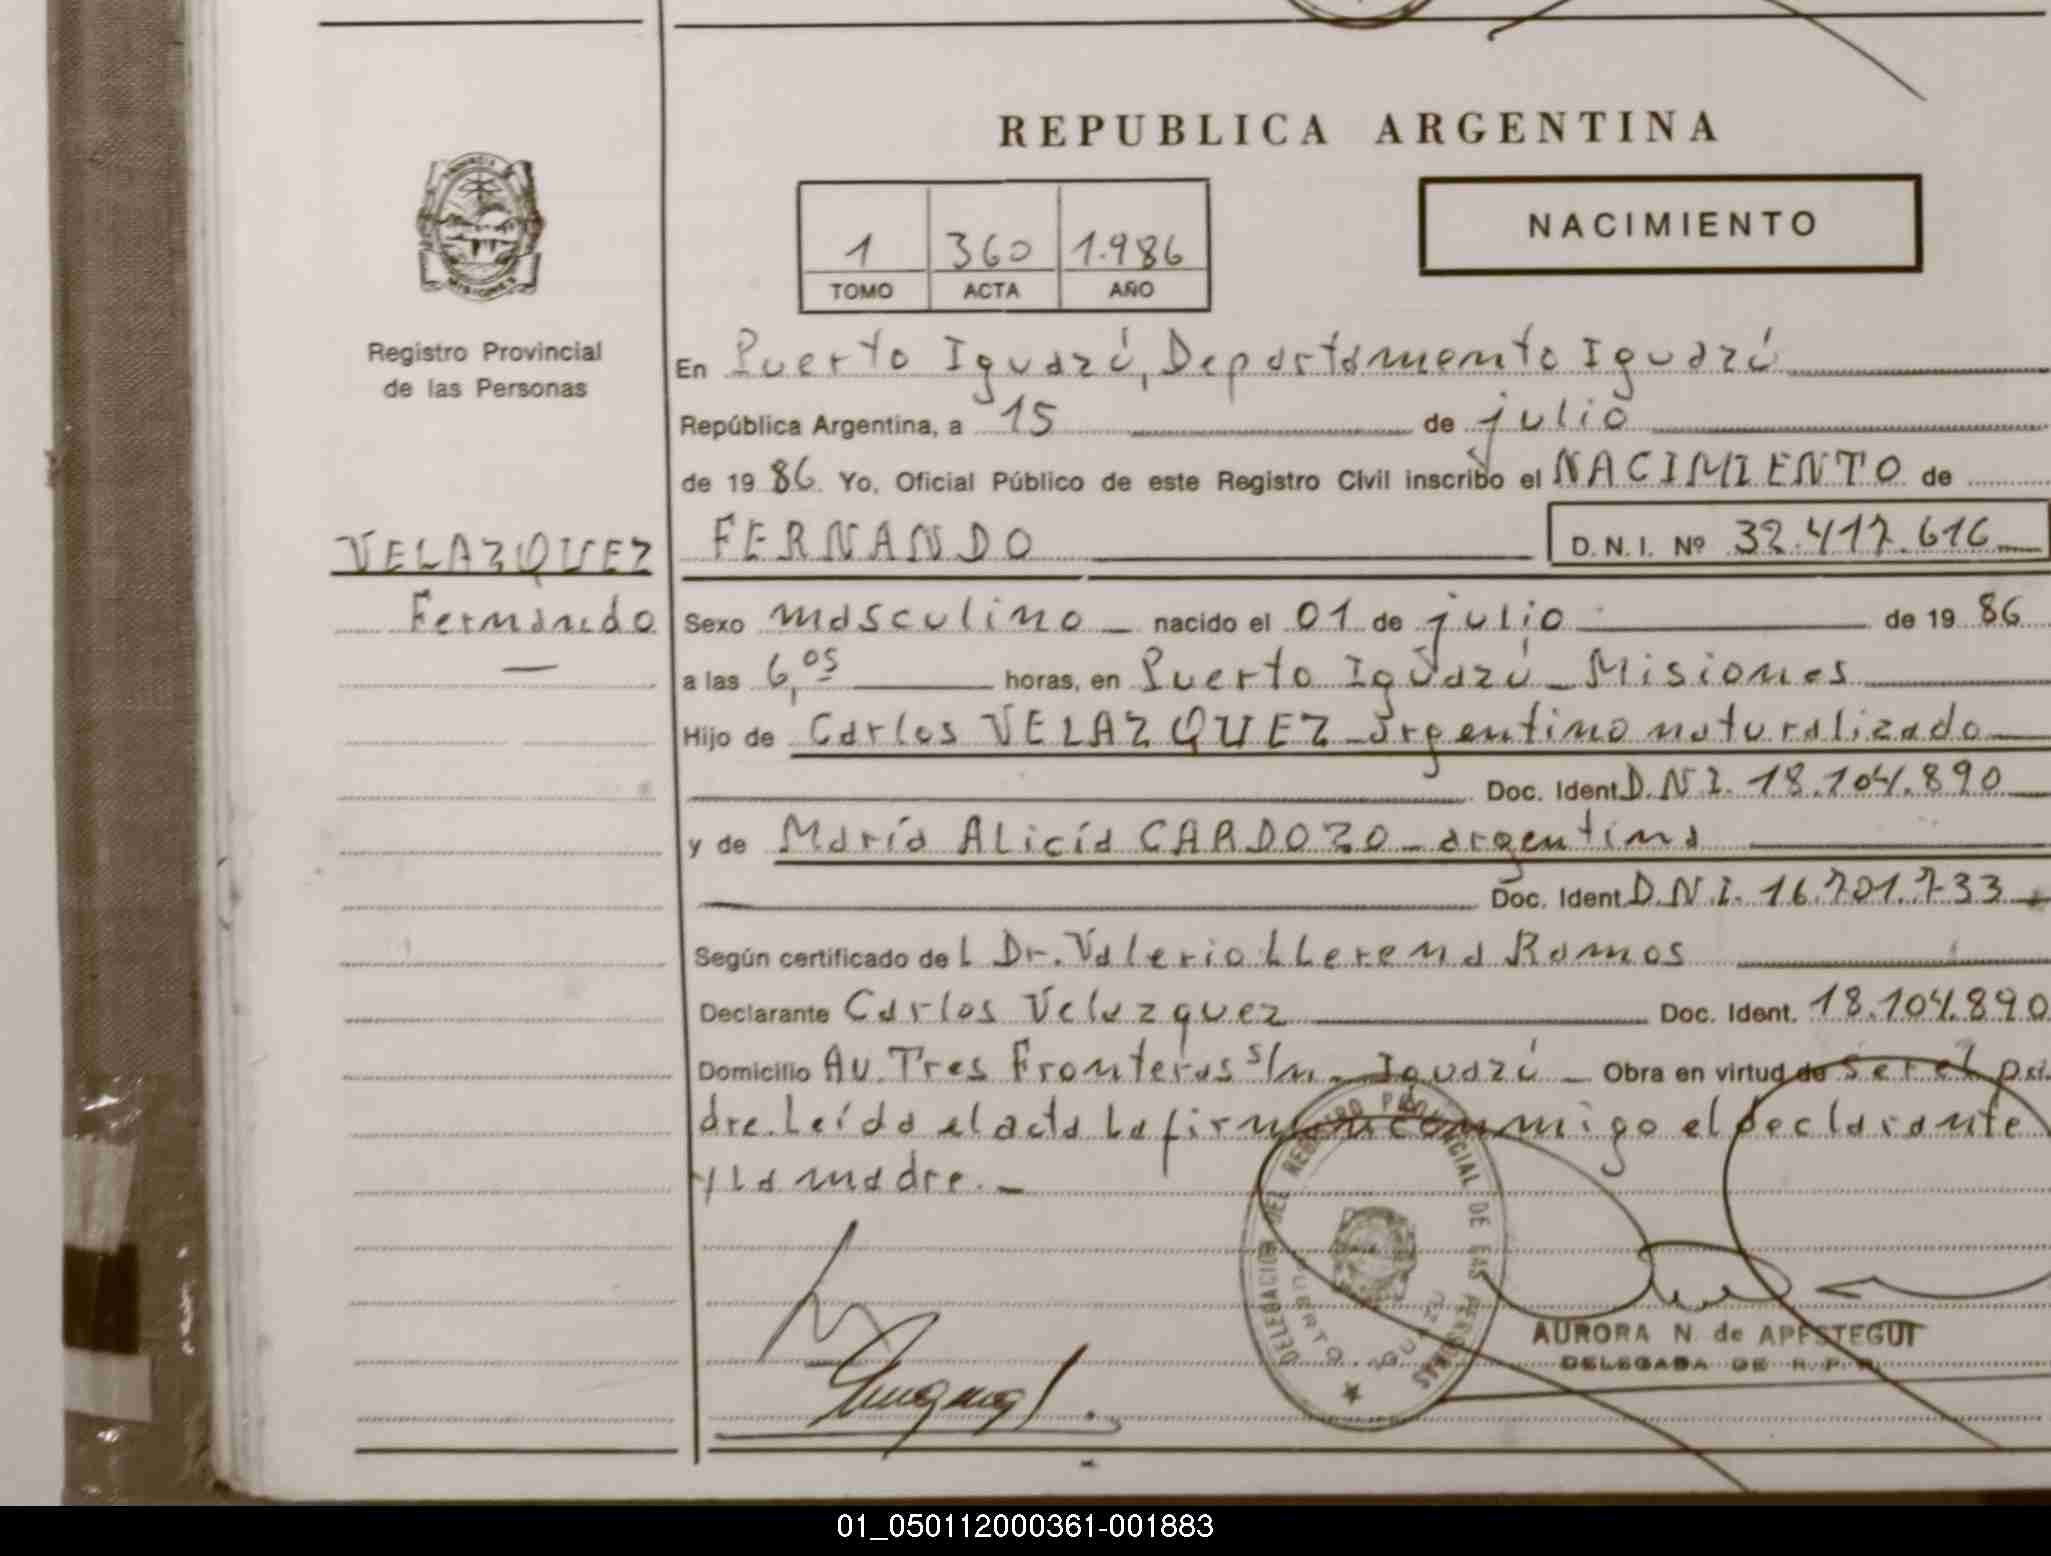 REPUBLICA ARGENTINA
NACIMIENTO
1 360 1.986
TOMO ACTA AÑO
PROVINCIA
MISIONES
Registro Provincial
de las Personas
VELAZQUEZ
Fernando
En Puerto Iguazú, Departamento Iguazú
República Argentina, a 15 de julio
de 19 86. Yo, Oficial Público de este Registro Civil inscribo el NACIMIENTO de
FERNANDO D.N.I. Nº 32.417.616
Sexo masculino _ nacido el 01 de julio de 19 86
a las 6,05 horas, en Puerto Iguazú _ Misiones
Hijo de Carlos VELAZQUEZ _ argentino naturalizado
Doc. Ident D.N.I. 18.104.890
y de María Alicia CARDOZO _ argentina
Doc. Ident D.N.I. 16.701.733
Según certificado de l Dr. Valerio LLerena Ramos
Declarante Carlos Velazquez Doc. Ident. 18.104.890
Domicilio Av. Tres Fronteras s/n _ Iguazú _ Obra en virtud de ser el pa
dre. Leída el acta la firman conmigo el declarante
y la madre. _
DELEGACION DEL REGISTRO PROVINCIAL DE LAS PERSONAS
PUERTO IGUAZU
AURORA N. de APESTEGUI
DELEGADA DE R. P. P.
01_050112000361-001883